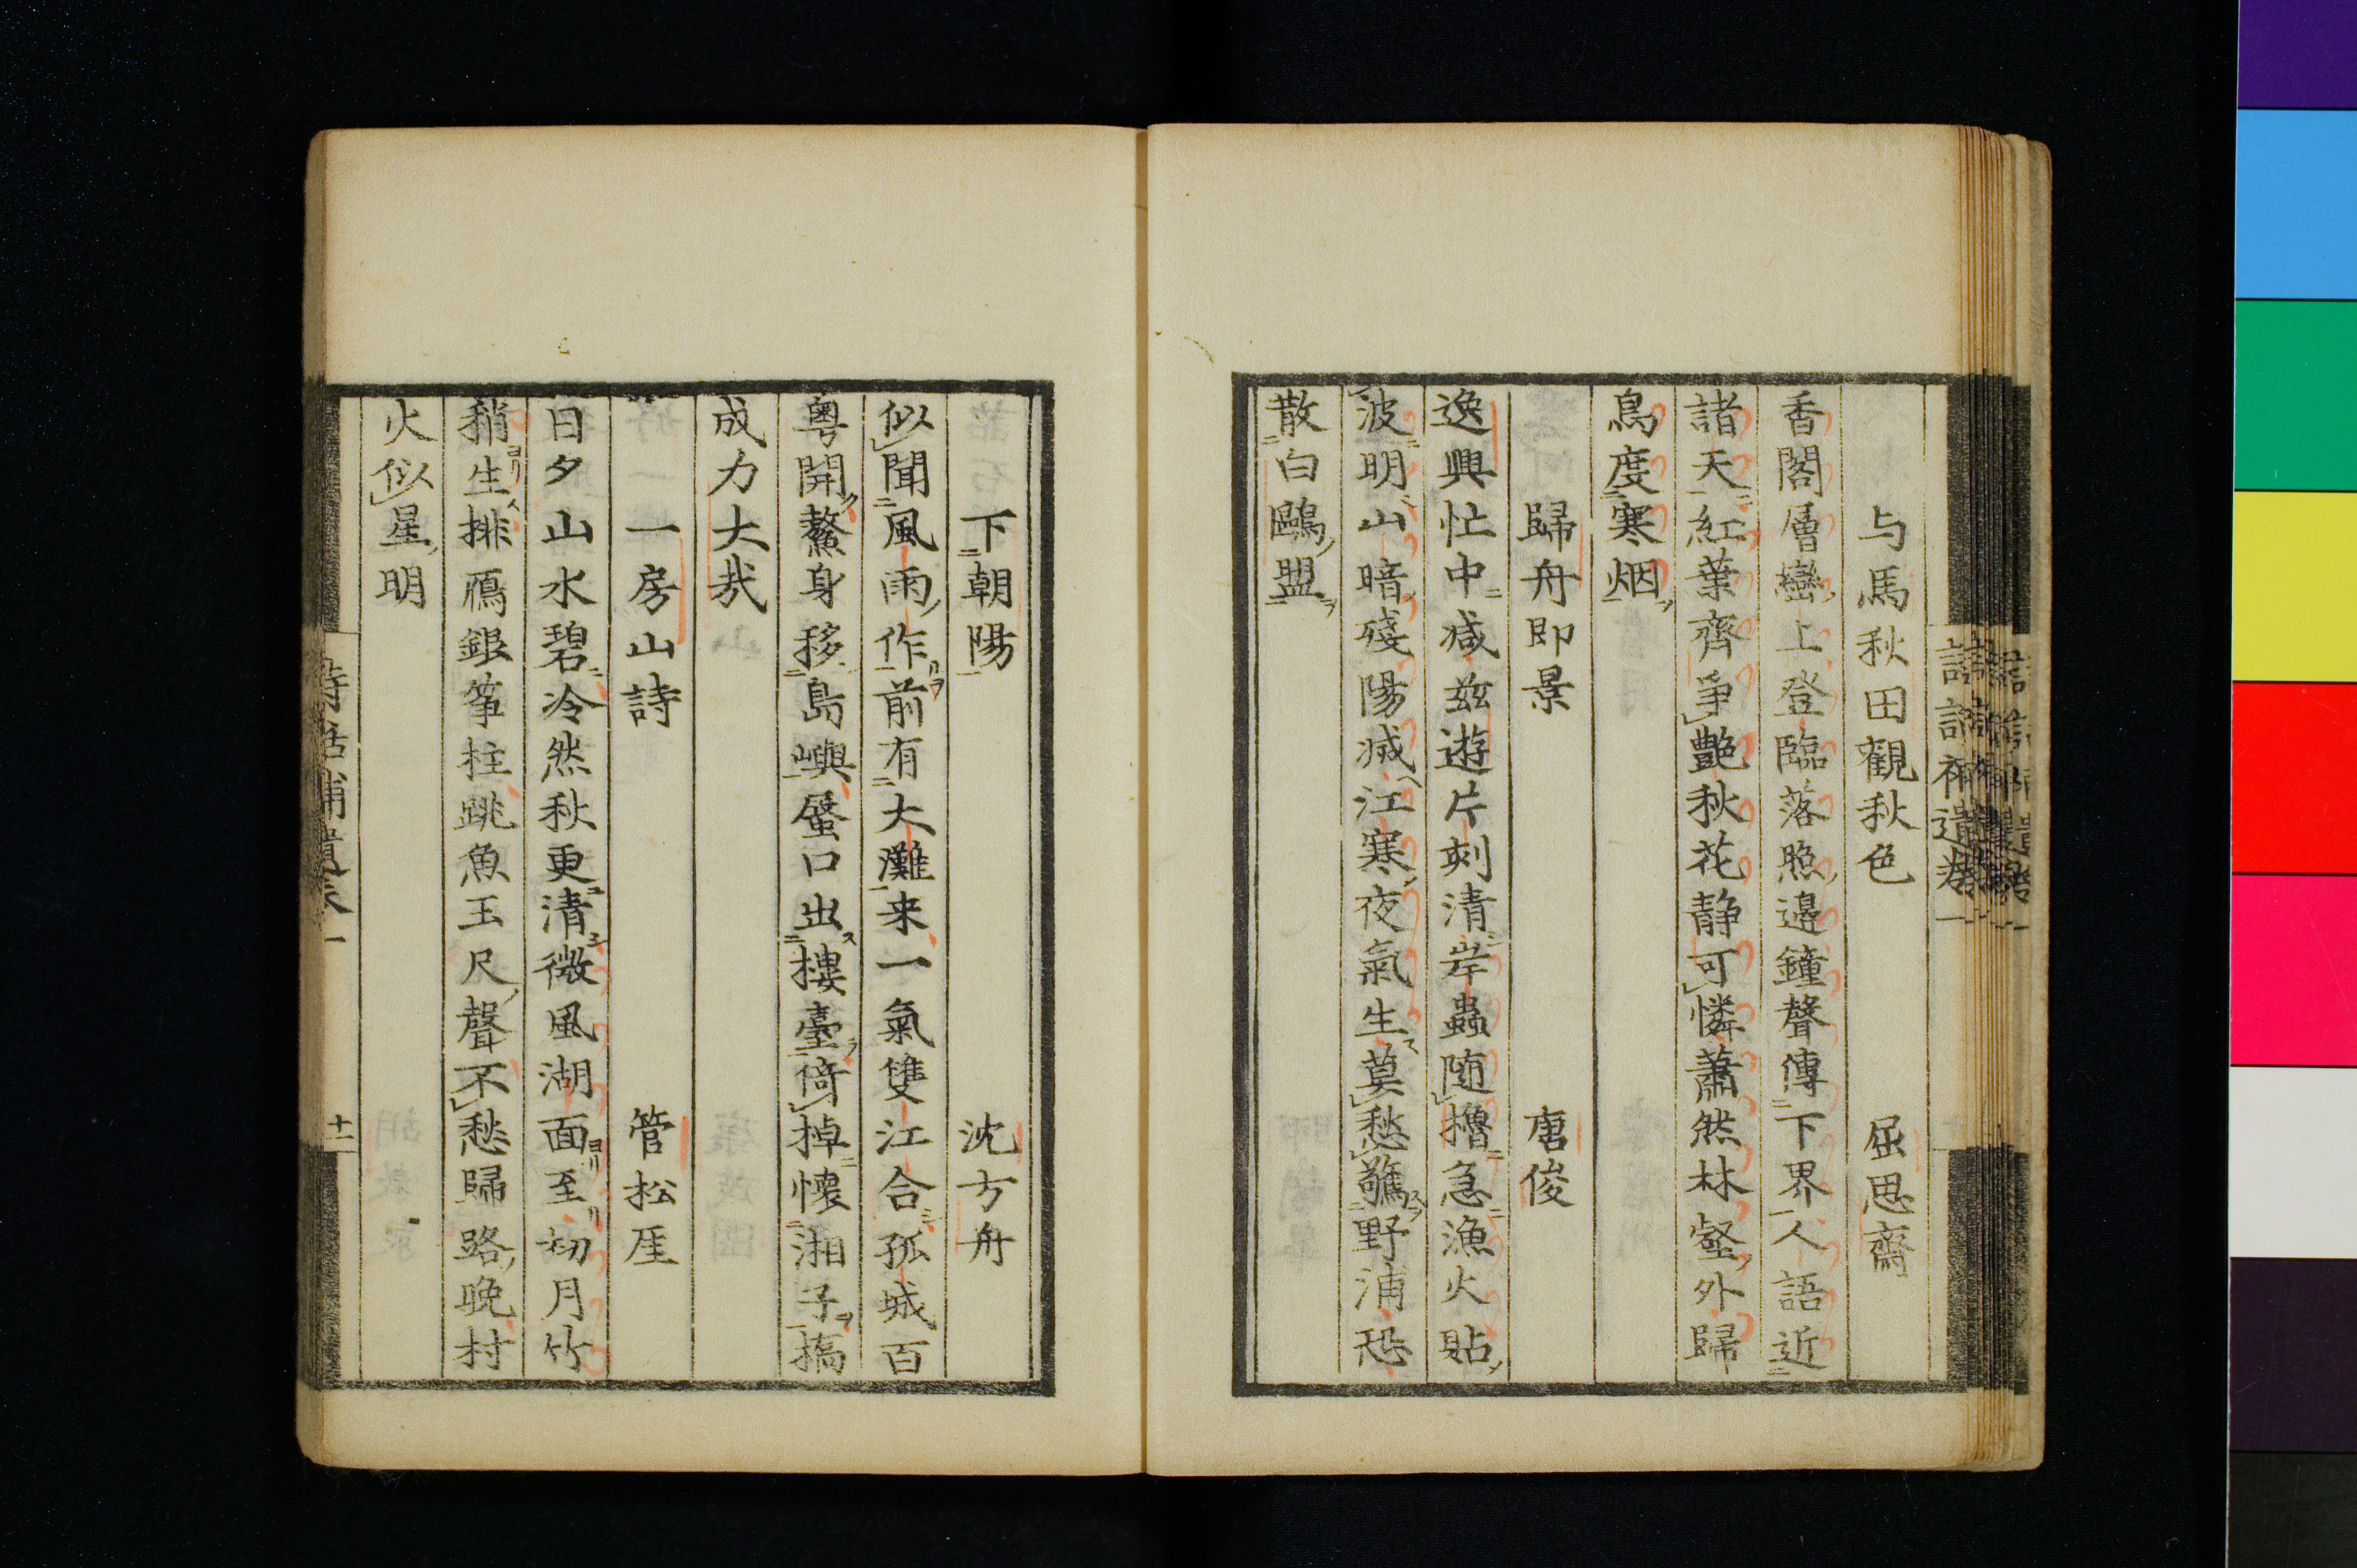 与馬秋田観秋色 屈思齋
香閣層巒上登臨落照邉鐘聲傳下界人語近
諸天紅葉齊爭艶秋花静可憐蕭然林壑外歸
鳥度寒烟
歸舟即景 唐俊
逸興忙中减茲遊片刻清岸蟲随櫓急漁火貼
波明山暗殘陽减江寒夜氣生莫愁驚野浦恐
散白鷗盟
下朝陽 沈方舟
似聞風雨作前有大灘来一氣雙江合孤城百
粤開鰲身移島嶼蜃口出摟臺倚棹懐湘子搞
成力大㢤
一房山詩 管松厓
日夕山水碧冷然秋更清微風湖面至初月竹
稍生排鴈銀筝柱跳魚玉尺聲不愁歸路晩村
火似星明
詩話補遺巻一
十二